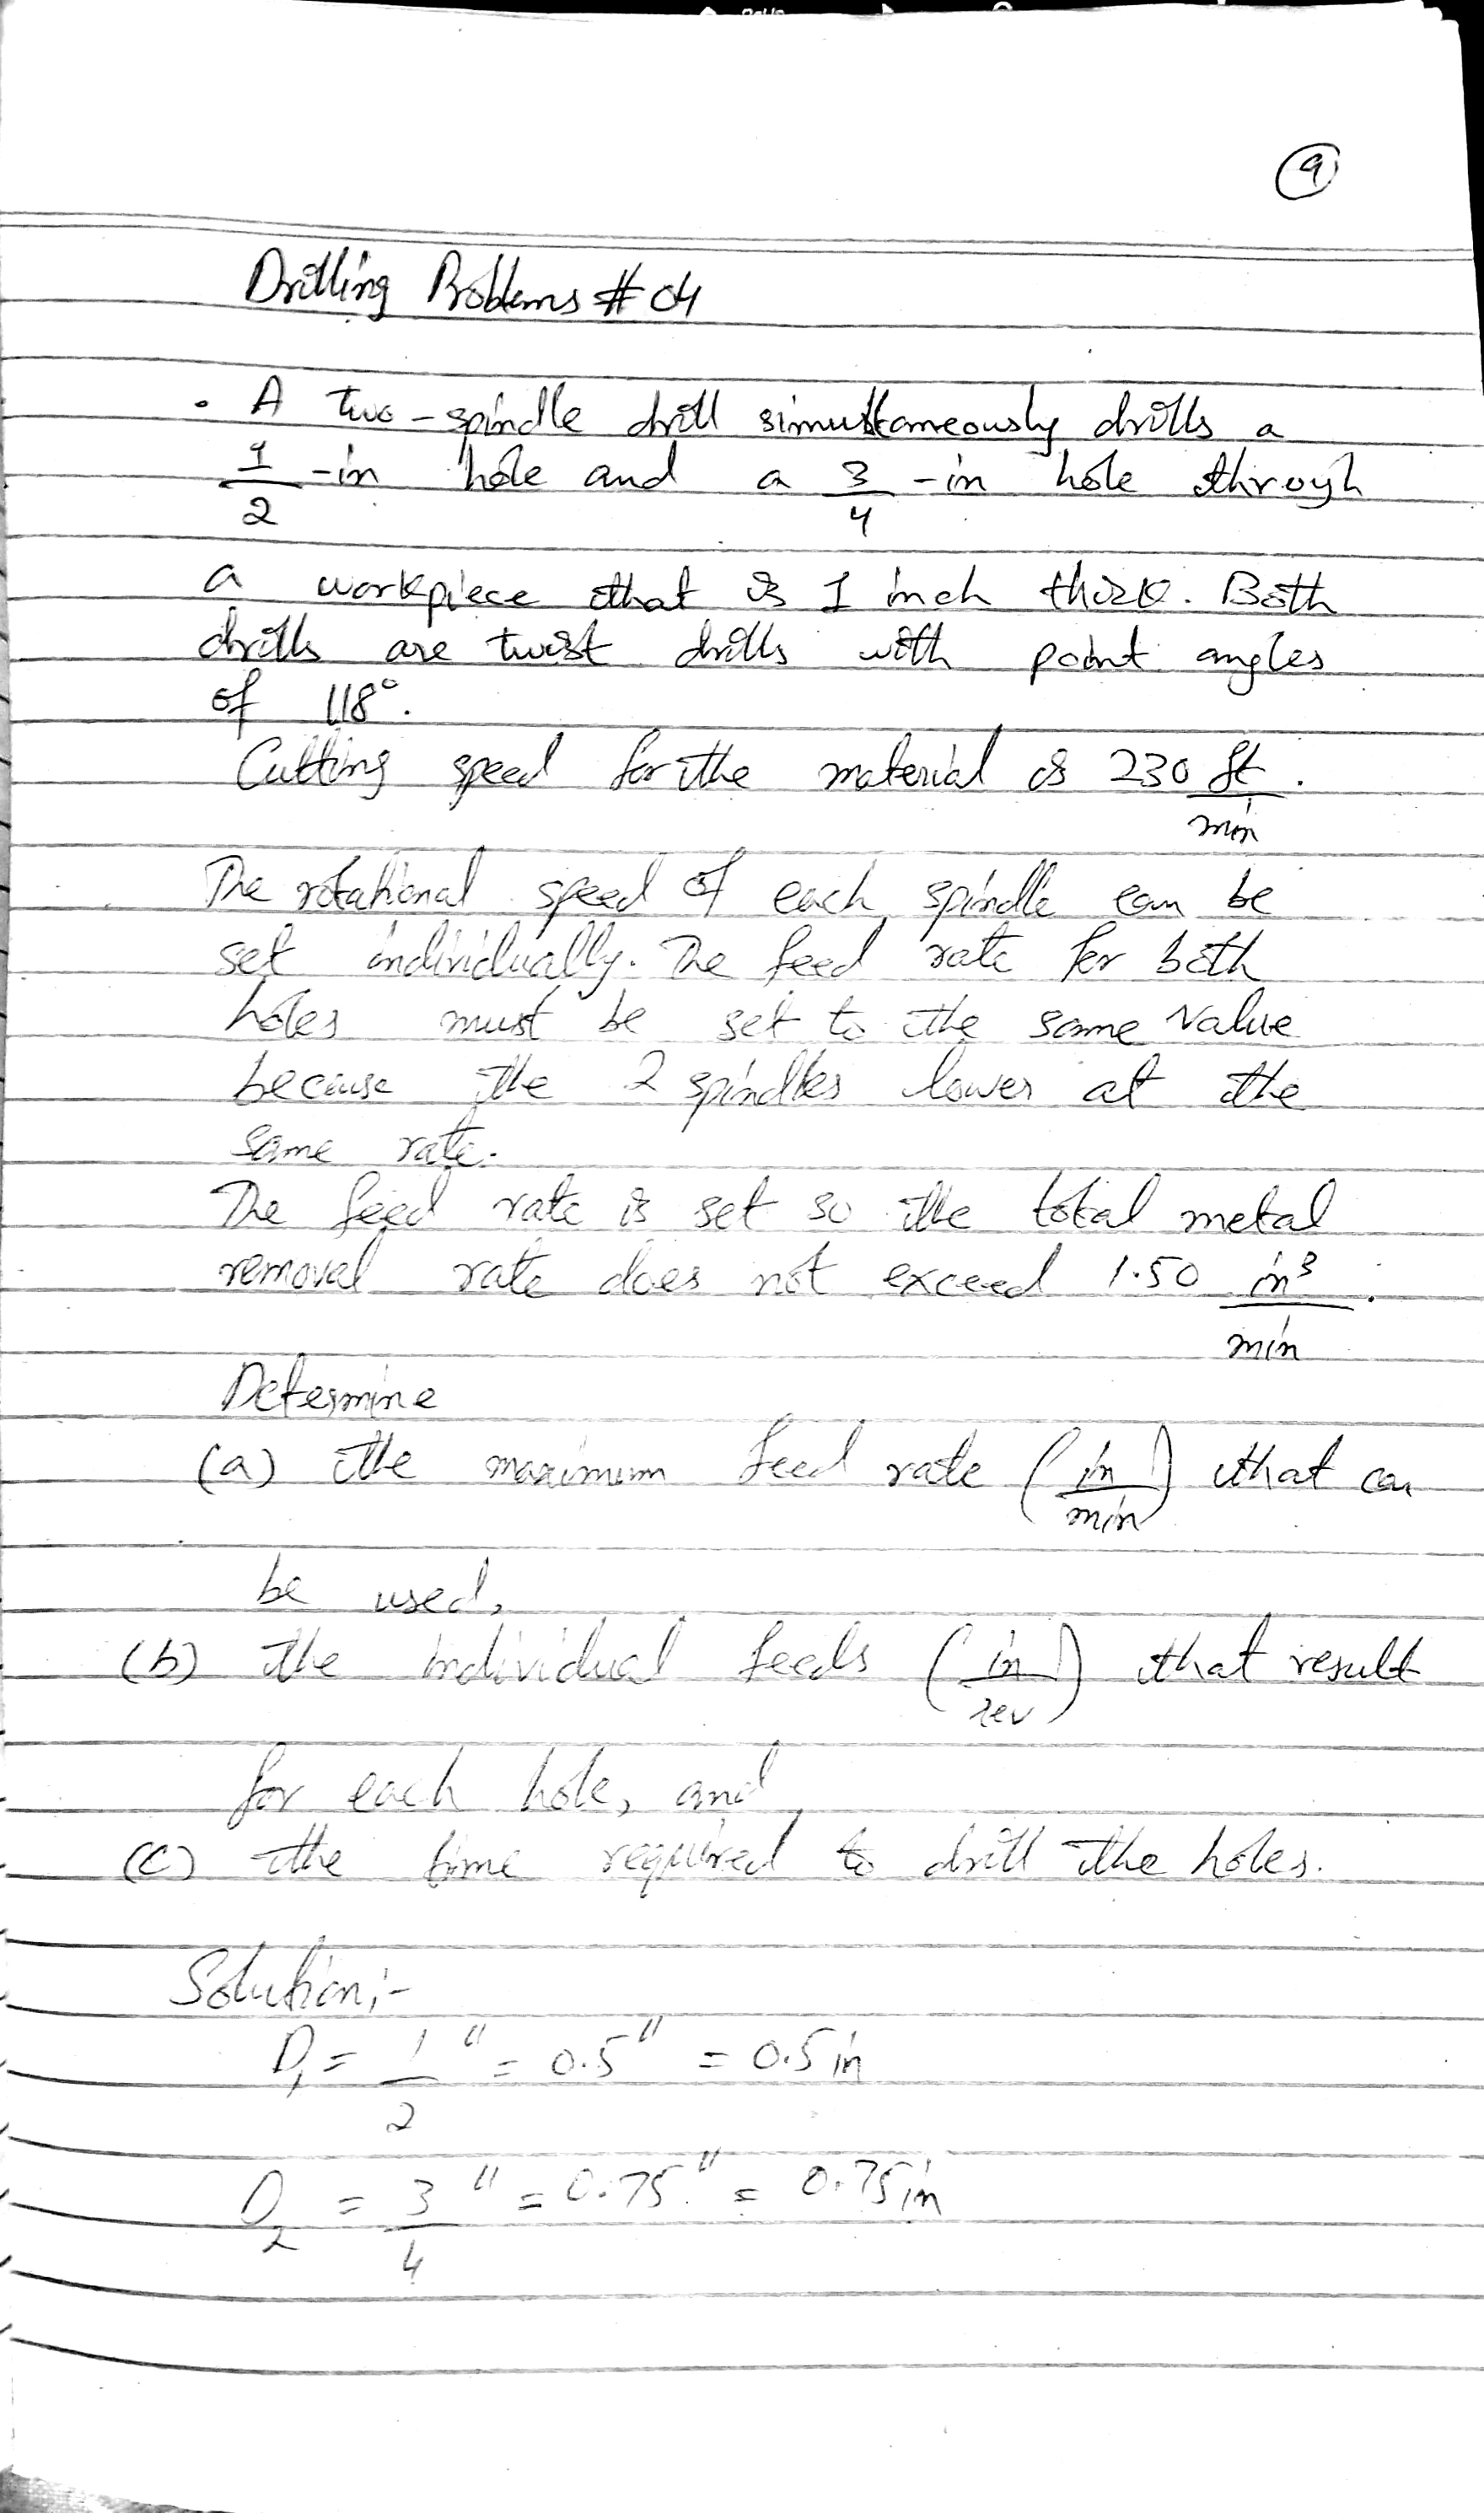 9
Drilling Problems # 04
• A two-spindle drill simultaneously drills a
1/2 -in hole and a 3/4 -in hole through
a workpiece that is 1 inch thick. Both
drills are twist drills with point angles
of 118°.
Cutting speed for the material is 230 ft/min.
The rotational speed of each spindle can be
set individually. The feed rate for both
holes must be set to the same value
because the 2 spindles lower at the
same rate.
The feed rate is set so the total metal
removal rate does not exceed 1.50 in³/min.
Determine
(a) the maximum feed rate (in/min) that can
be used,
(b) the individual feeds (in/rev) that result
for each hole, and
(c) the time required to drill the holes.
Solution;-
D₁ = 1/2 " = 0.5" = 0.5 in
D₂ = 3/4 " = 0.75" = 0.75 in